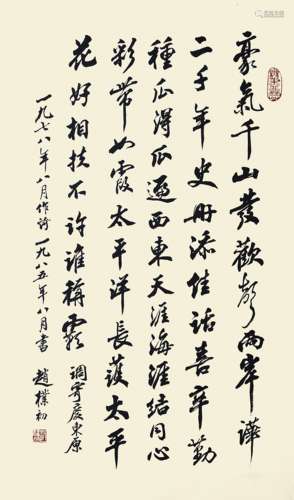 豪氣千山發歡聲兩岸譁
二千年史册添佳話善辛勤
種瓜得瓜遍西東天涯海涯結同心
彩帶如霞太平洋長護太平
花好相扶不許誰稱霸 調寄慶東原
一九七八年八月作詩 一九八五年八月書 趙樸初